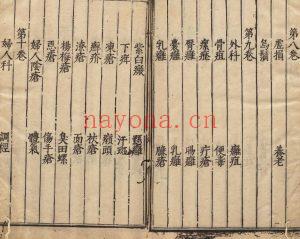 第八卷
虛損 養老
烏鬚
第九卷
外科 癰疽
骨疽 便毒
瘰癧 疔瘡
臀癰 腸癰
囊癰
乳癰 臁瘡
紫白癜
下疳 汗斑
凍瘡 癩頭
癬疥 杖瘡
面瘡
楊梅瘡 臭田螺
惡瘡
婦人陰瘡 體氣
第十卷
婦人科 調經
nayona.cn